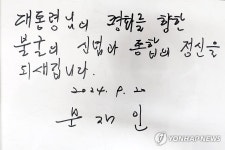 대통령님의 평화를 향한
불굴의 신념과 통합의 정신을
되새깁니다.
2024. 9. 20
문 재 인
YONHAP NEWS